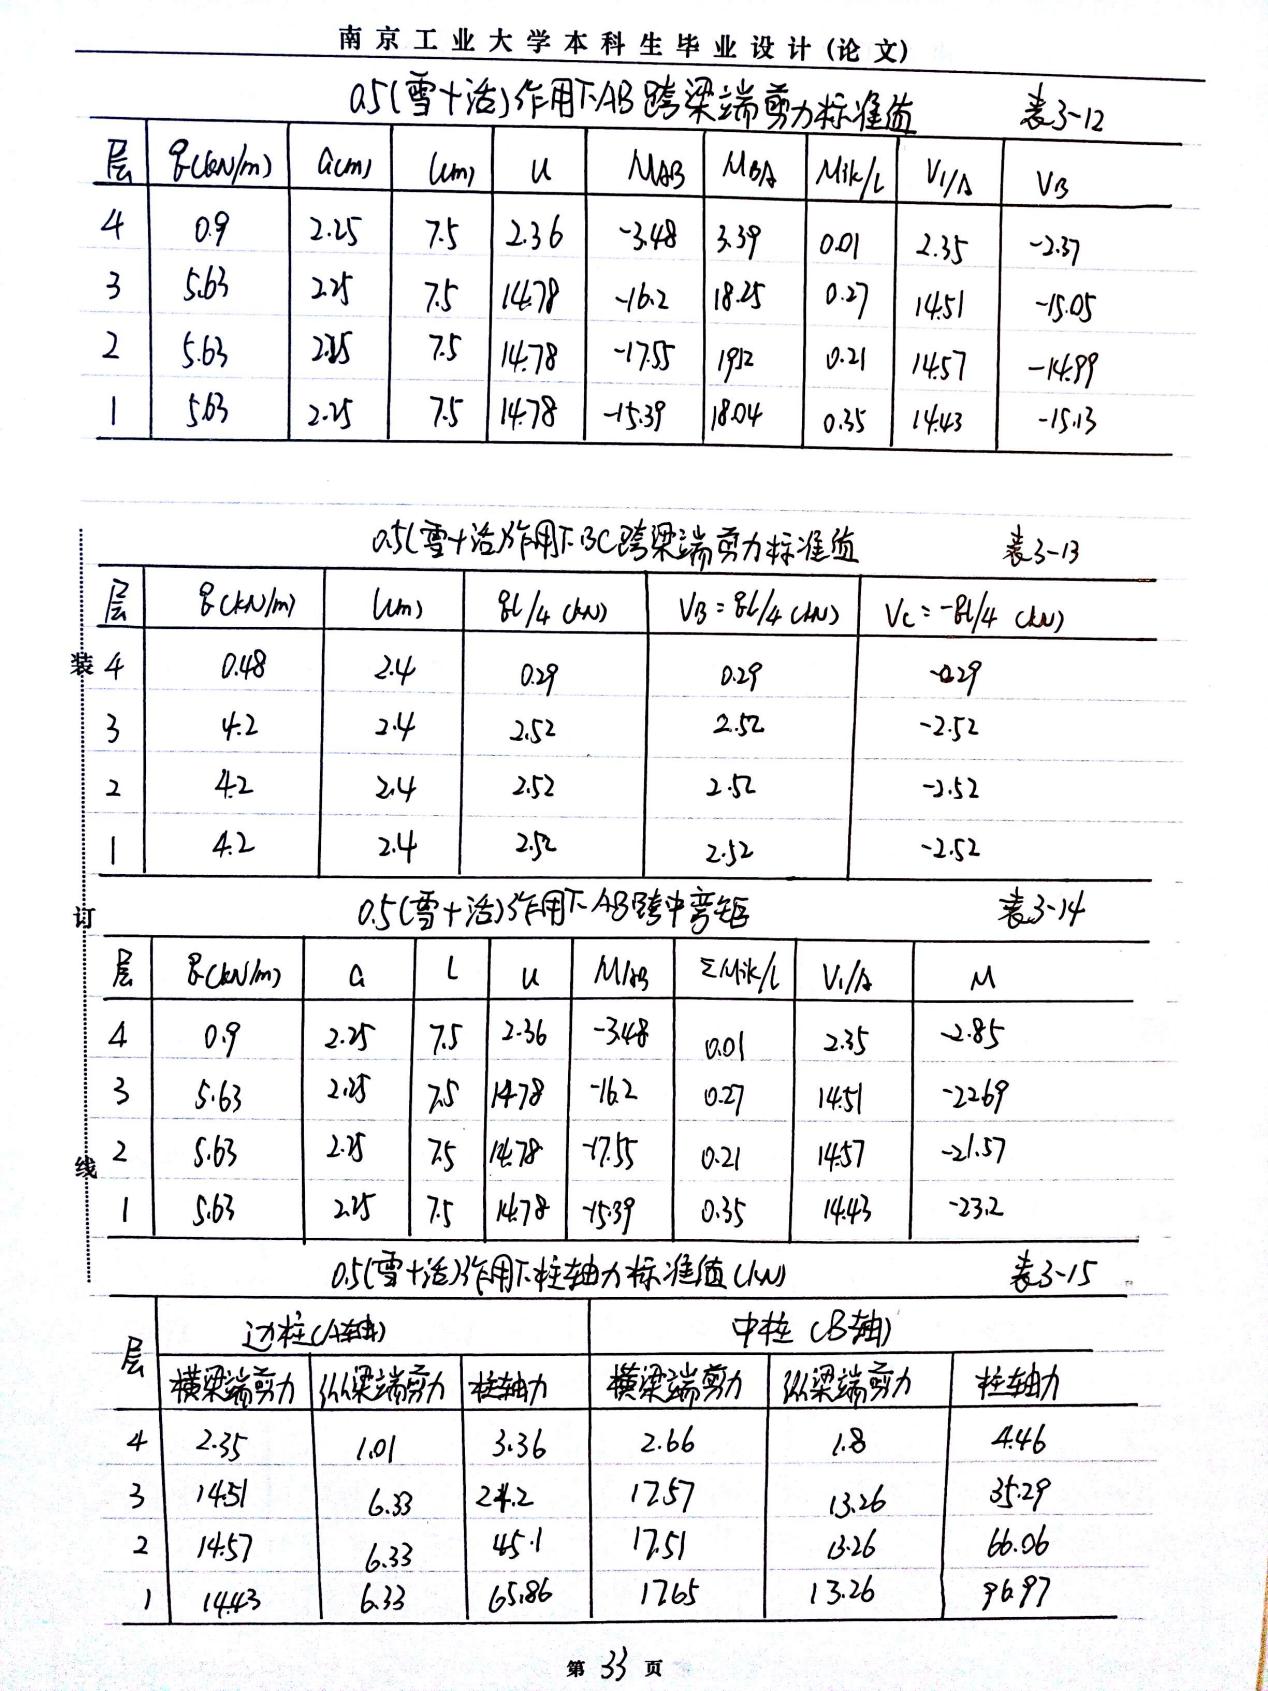 南京工业大学本科生毕业设计(论文)
0.5(雪+活)作用下AB跨梁端剪力标准值 表3-12
层 q(kN/m) a(m) l(m) u MAB MBA Mik/l V1/A VB
4 0.9 2.25 7.5 2.36 -3.48 3.39 0.01 2.35 -2.37
3 5.63 2.25 7.5 14.78 -16.2 18.25 0.27 14.51 -15.05
2 5.63 2.25 7.5 14.78 -17.55 19.12 0.21 14.57 -14.99
1 5.63 2.25 7.5 14.78 -15.39 18.04 0.35 14.43 -15.13
0.5(雪+活)作用下BC跨梁端剪力标准值 表3-13
层 q(kN/m) l(m) ql/4 (kN) VB=ql/4 (kN) VC=-ql/4 (kN)
装 4 0.48 2.4 0.29 0.29 -0.29
3 4.2 2.4 2.52 2.52 -2.52
2 4.2 2.4 2.52 2.52 -2.52
1 4.2 2.4 2.52 2.52 -2.52
订 0.5(雪+活)作用下AB跨中弯矩 表3-14
层 q(kN/m) a L u MAB ΣMik/L V1/A M
4 0.9 2.25 7.5 2.36 -3.48 0.01 2.35 -2.85
3 5.63 2.25 7.5 14.78 -16.2 0.27 14.51 -22.69
线 2 5.63 2.25 7.5 14.78 -17.55 0.21 14.57 -21.57
1 5.63 2.25 7.5 14.78 -15.39 0.35 14.43 -23.2
0.5(雪+活)作用下柱轴力标准值(kN) 表3-15
层 边柱(A轴) 中柱(B轴)
横梁端剪力 纵梁端剪力 柱轴力 横梁端剪力 纵梁端剪力 柱轴力
4 2.35 1.01 3.36 2.66 1.8 4.46
3 14.51 6.33 24.2 17.57 13.26 35.29
2 14.57 6.33 45.1 17.51 13.26 66.06
1 14.43 6.33 65.86 17.65 13.26 96.97
第 33 页